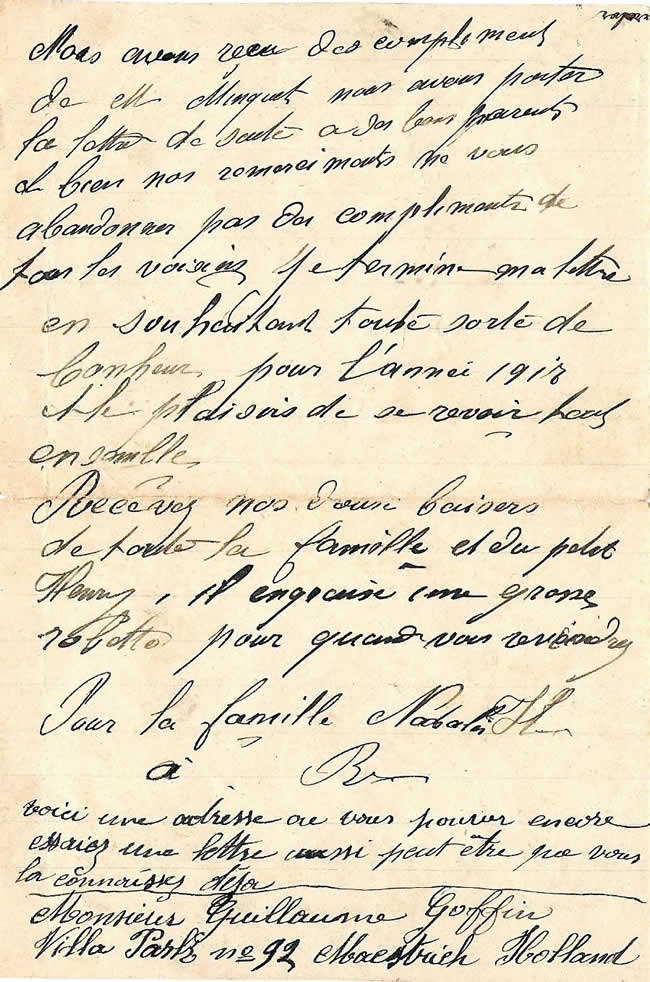 Nous avons reçu des compliment
de M Minguet nous avons porter
la lettre de suite a des bons parents
et bien nos remerciments ne vous
abandonner pas des compliments de
tous les voisins Je termine ma lettre
en souhaitant toute sorte de
bonheur pour l'année 1917
et le plaisir de se revoir tous
ensemble
Recevez nos doux baisers
de toute la famille et du petit
Henry, il engraise une grosse
pour quand vous reviendrez
Pour la famille
à
voici une adresse ou vous pouver encore
essaiez une lettre aussi peut être que vous
la connaissez deja
Monsieur Guillaume Goffin
Villa Park no 92 Maestrich Holland